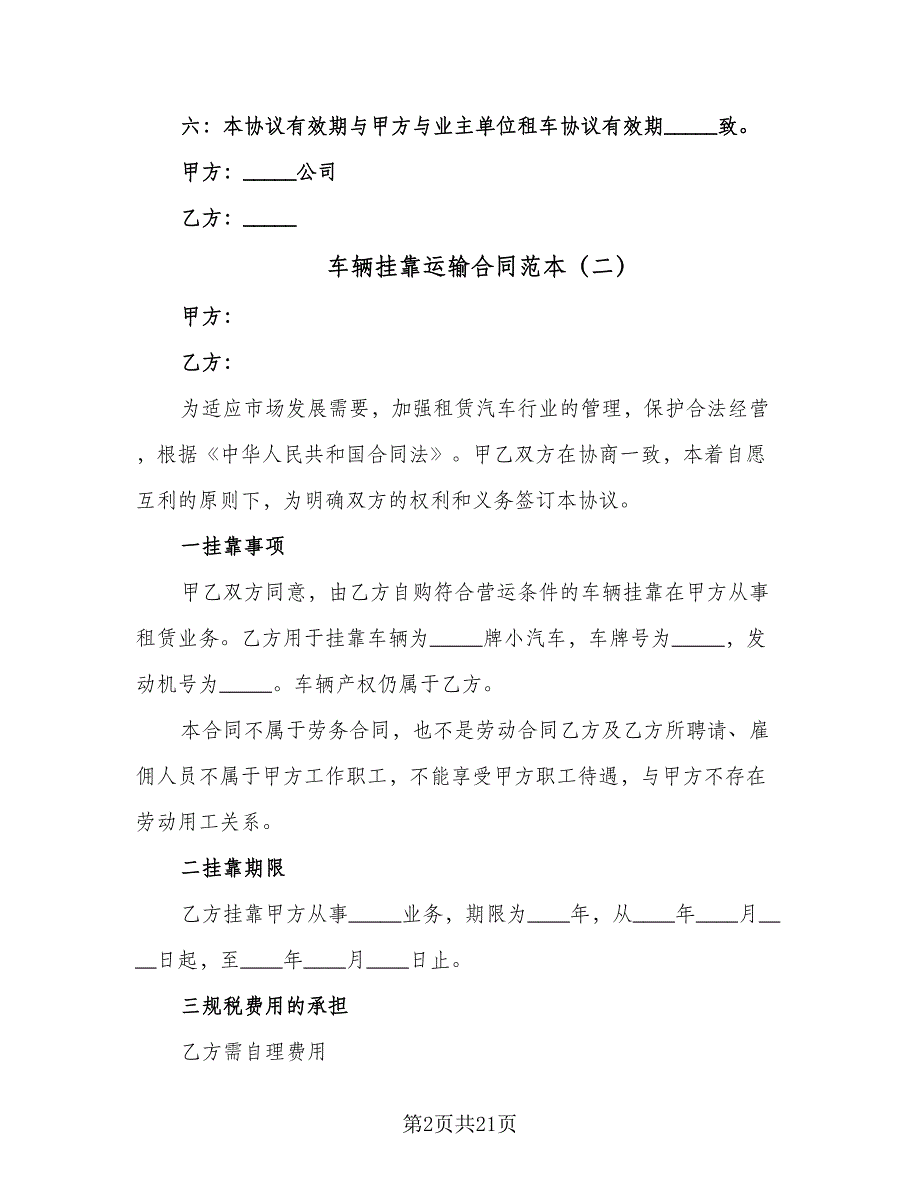 六：本协议有效期与甲方与业主单位租车协议有效期_____致。
甲方：_____公司
乙方：_____
车辆挂靠运输合同范本（二）
甲方：
乙方：
为适应市场发展需要，加强租赁汽车行业的管理，保护合法经营
，根据《中华人民共和国合同法》。甲乙双方在协商一致，本着自愿
互利的原则下，为明确双方的权利和义务签订本协议。
一挂靠事项
甲乙双方同意，由乙方自购符合营运条件的车辆挂靠在甲方从事
租赁业务。乙方用于挂靠车辆为_____牌小汽车，车牌号为_____，发
动机号为_____。车辆产权仍属于乙方。
本合同不属于劳务合同，也不是劳动合同乙方及乙方所聘请、雇
佣人员不属于甲方工作职工，不能享受甲方职工待遇，与甲方不存在
劳动用工关系。
二挂靠期限
乙方挂靠甲方从事_____业务，期限为____年，从____年____月__
__日起，至____年____月____日止。
三规税费用的承担
乙方需自理费用
第2页共21页